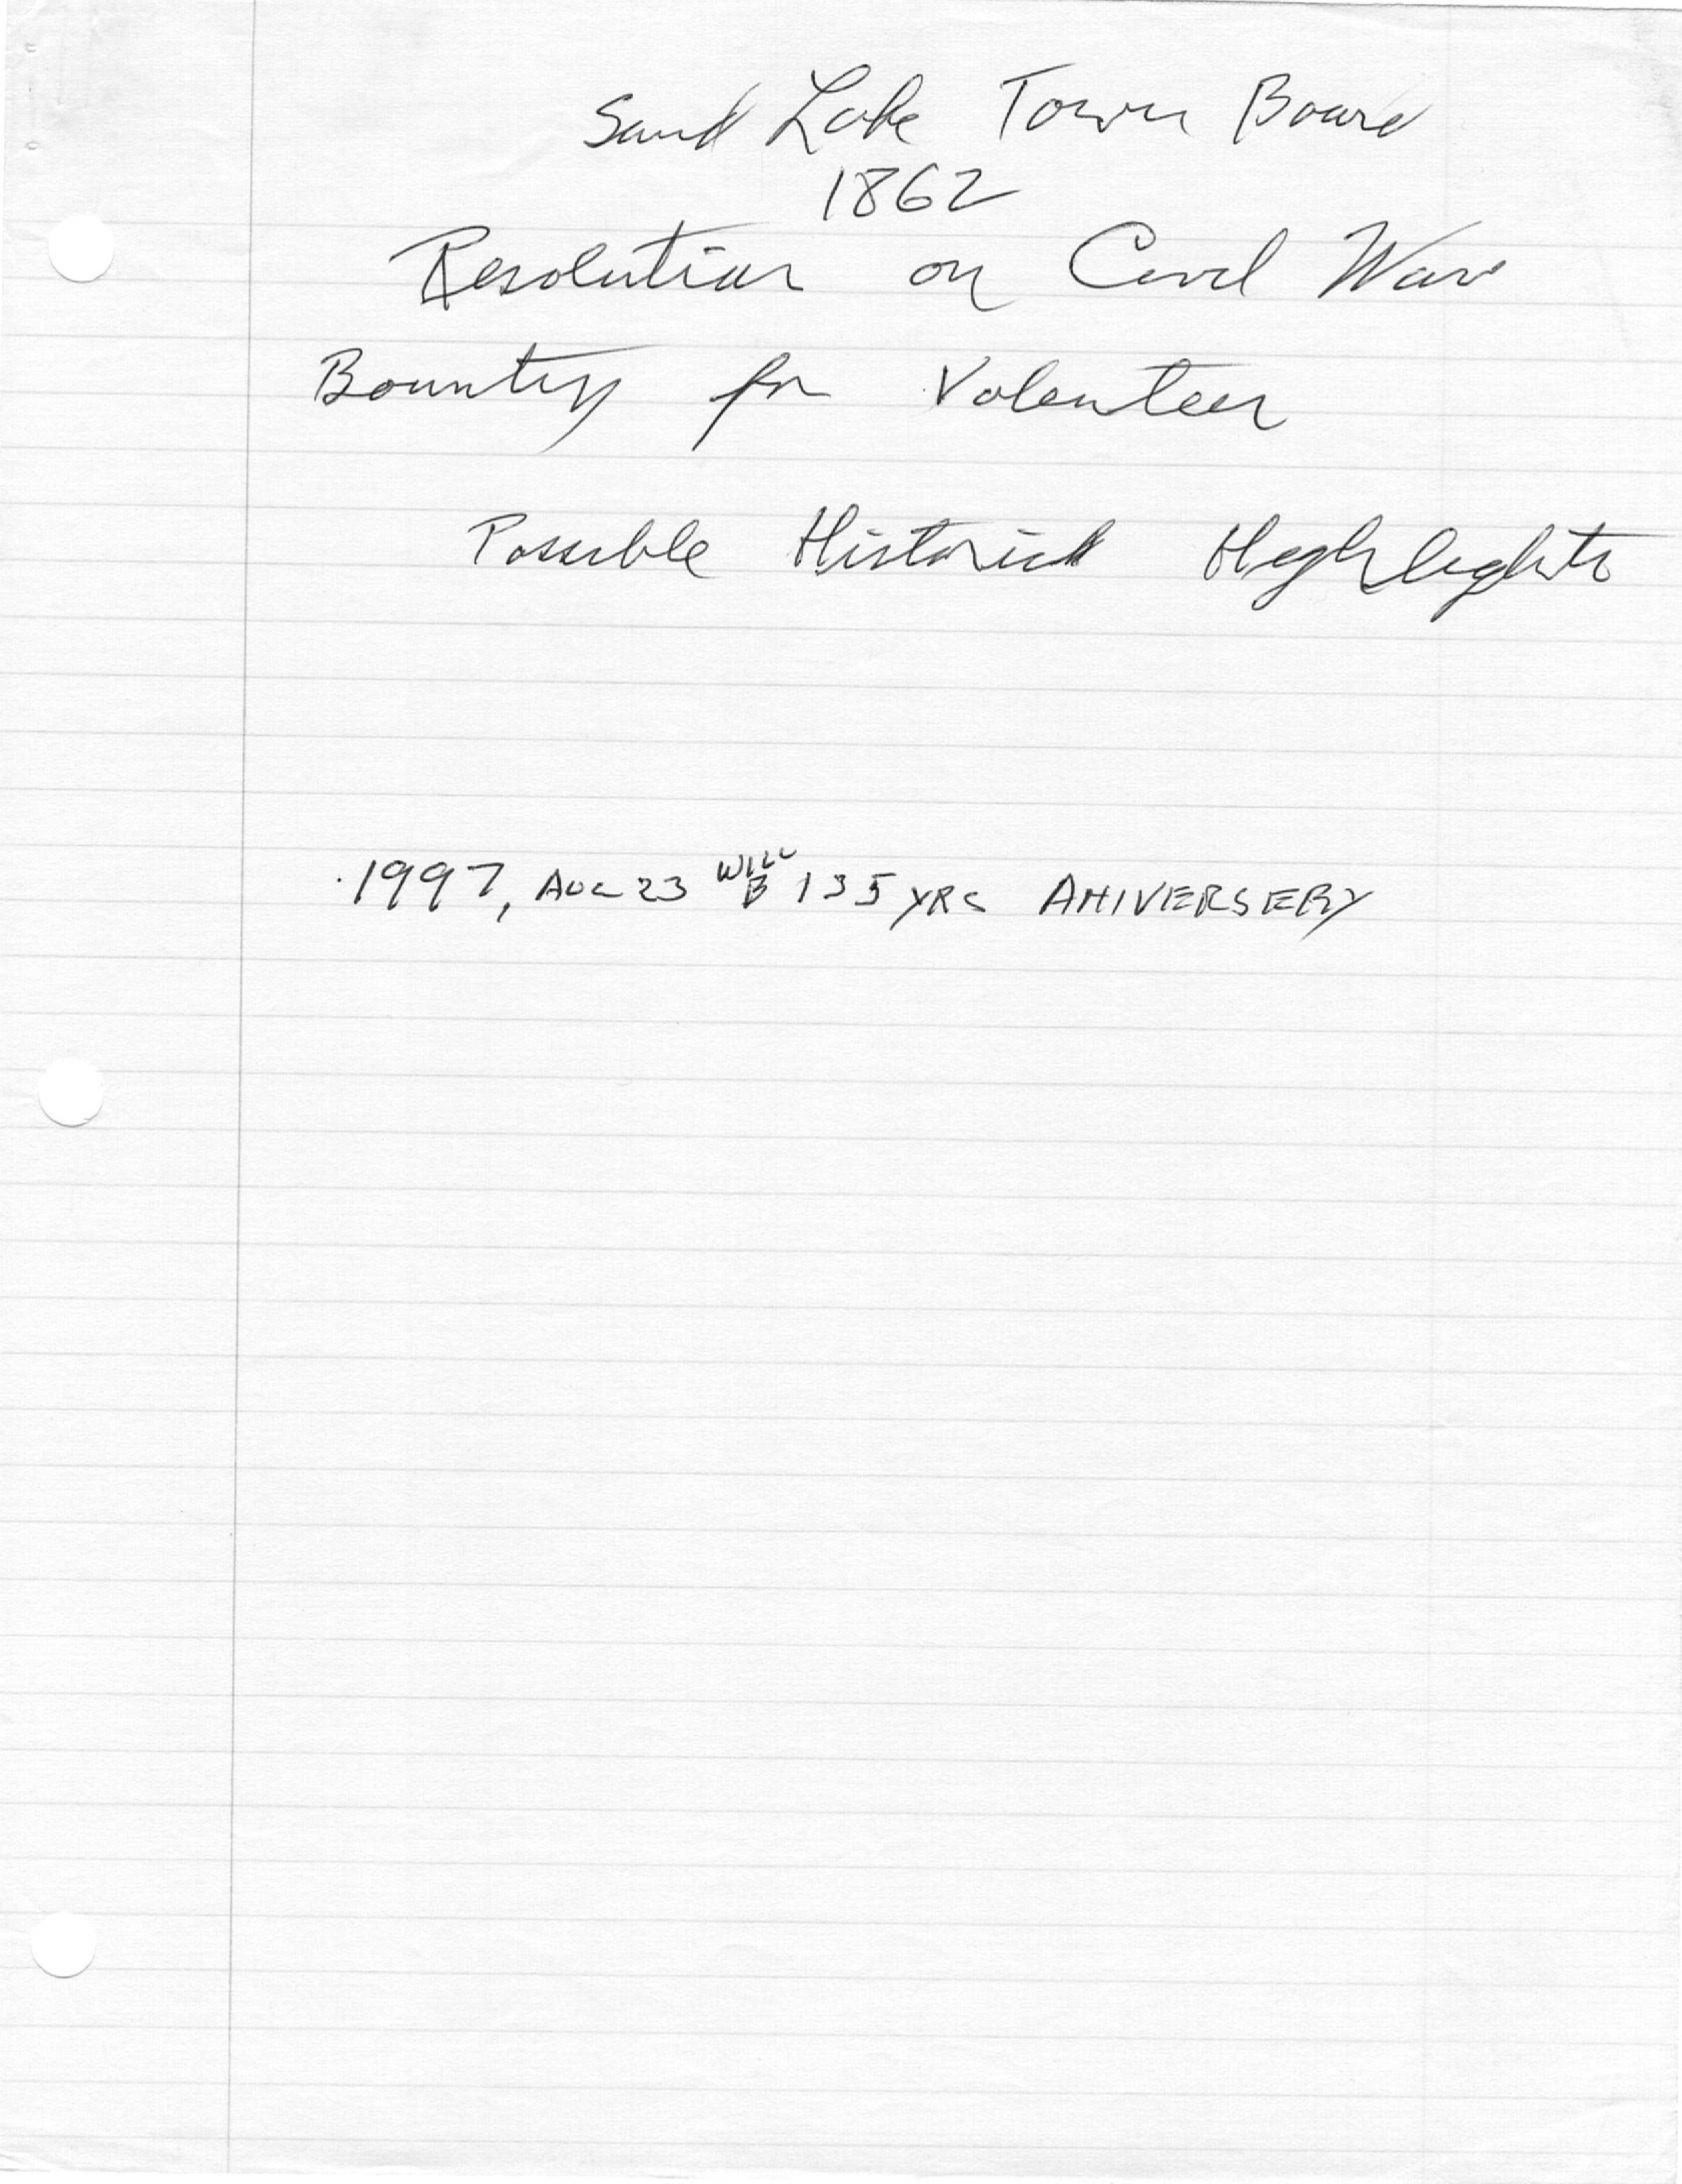 Sand Lake Town Board
1862
Resolution on Civil War
Bounty for Volenteer
Possible Historick Highlights
1997, AUG 23 WILL B 135 YRS ANIVERSERY